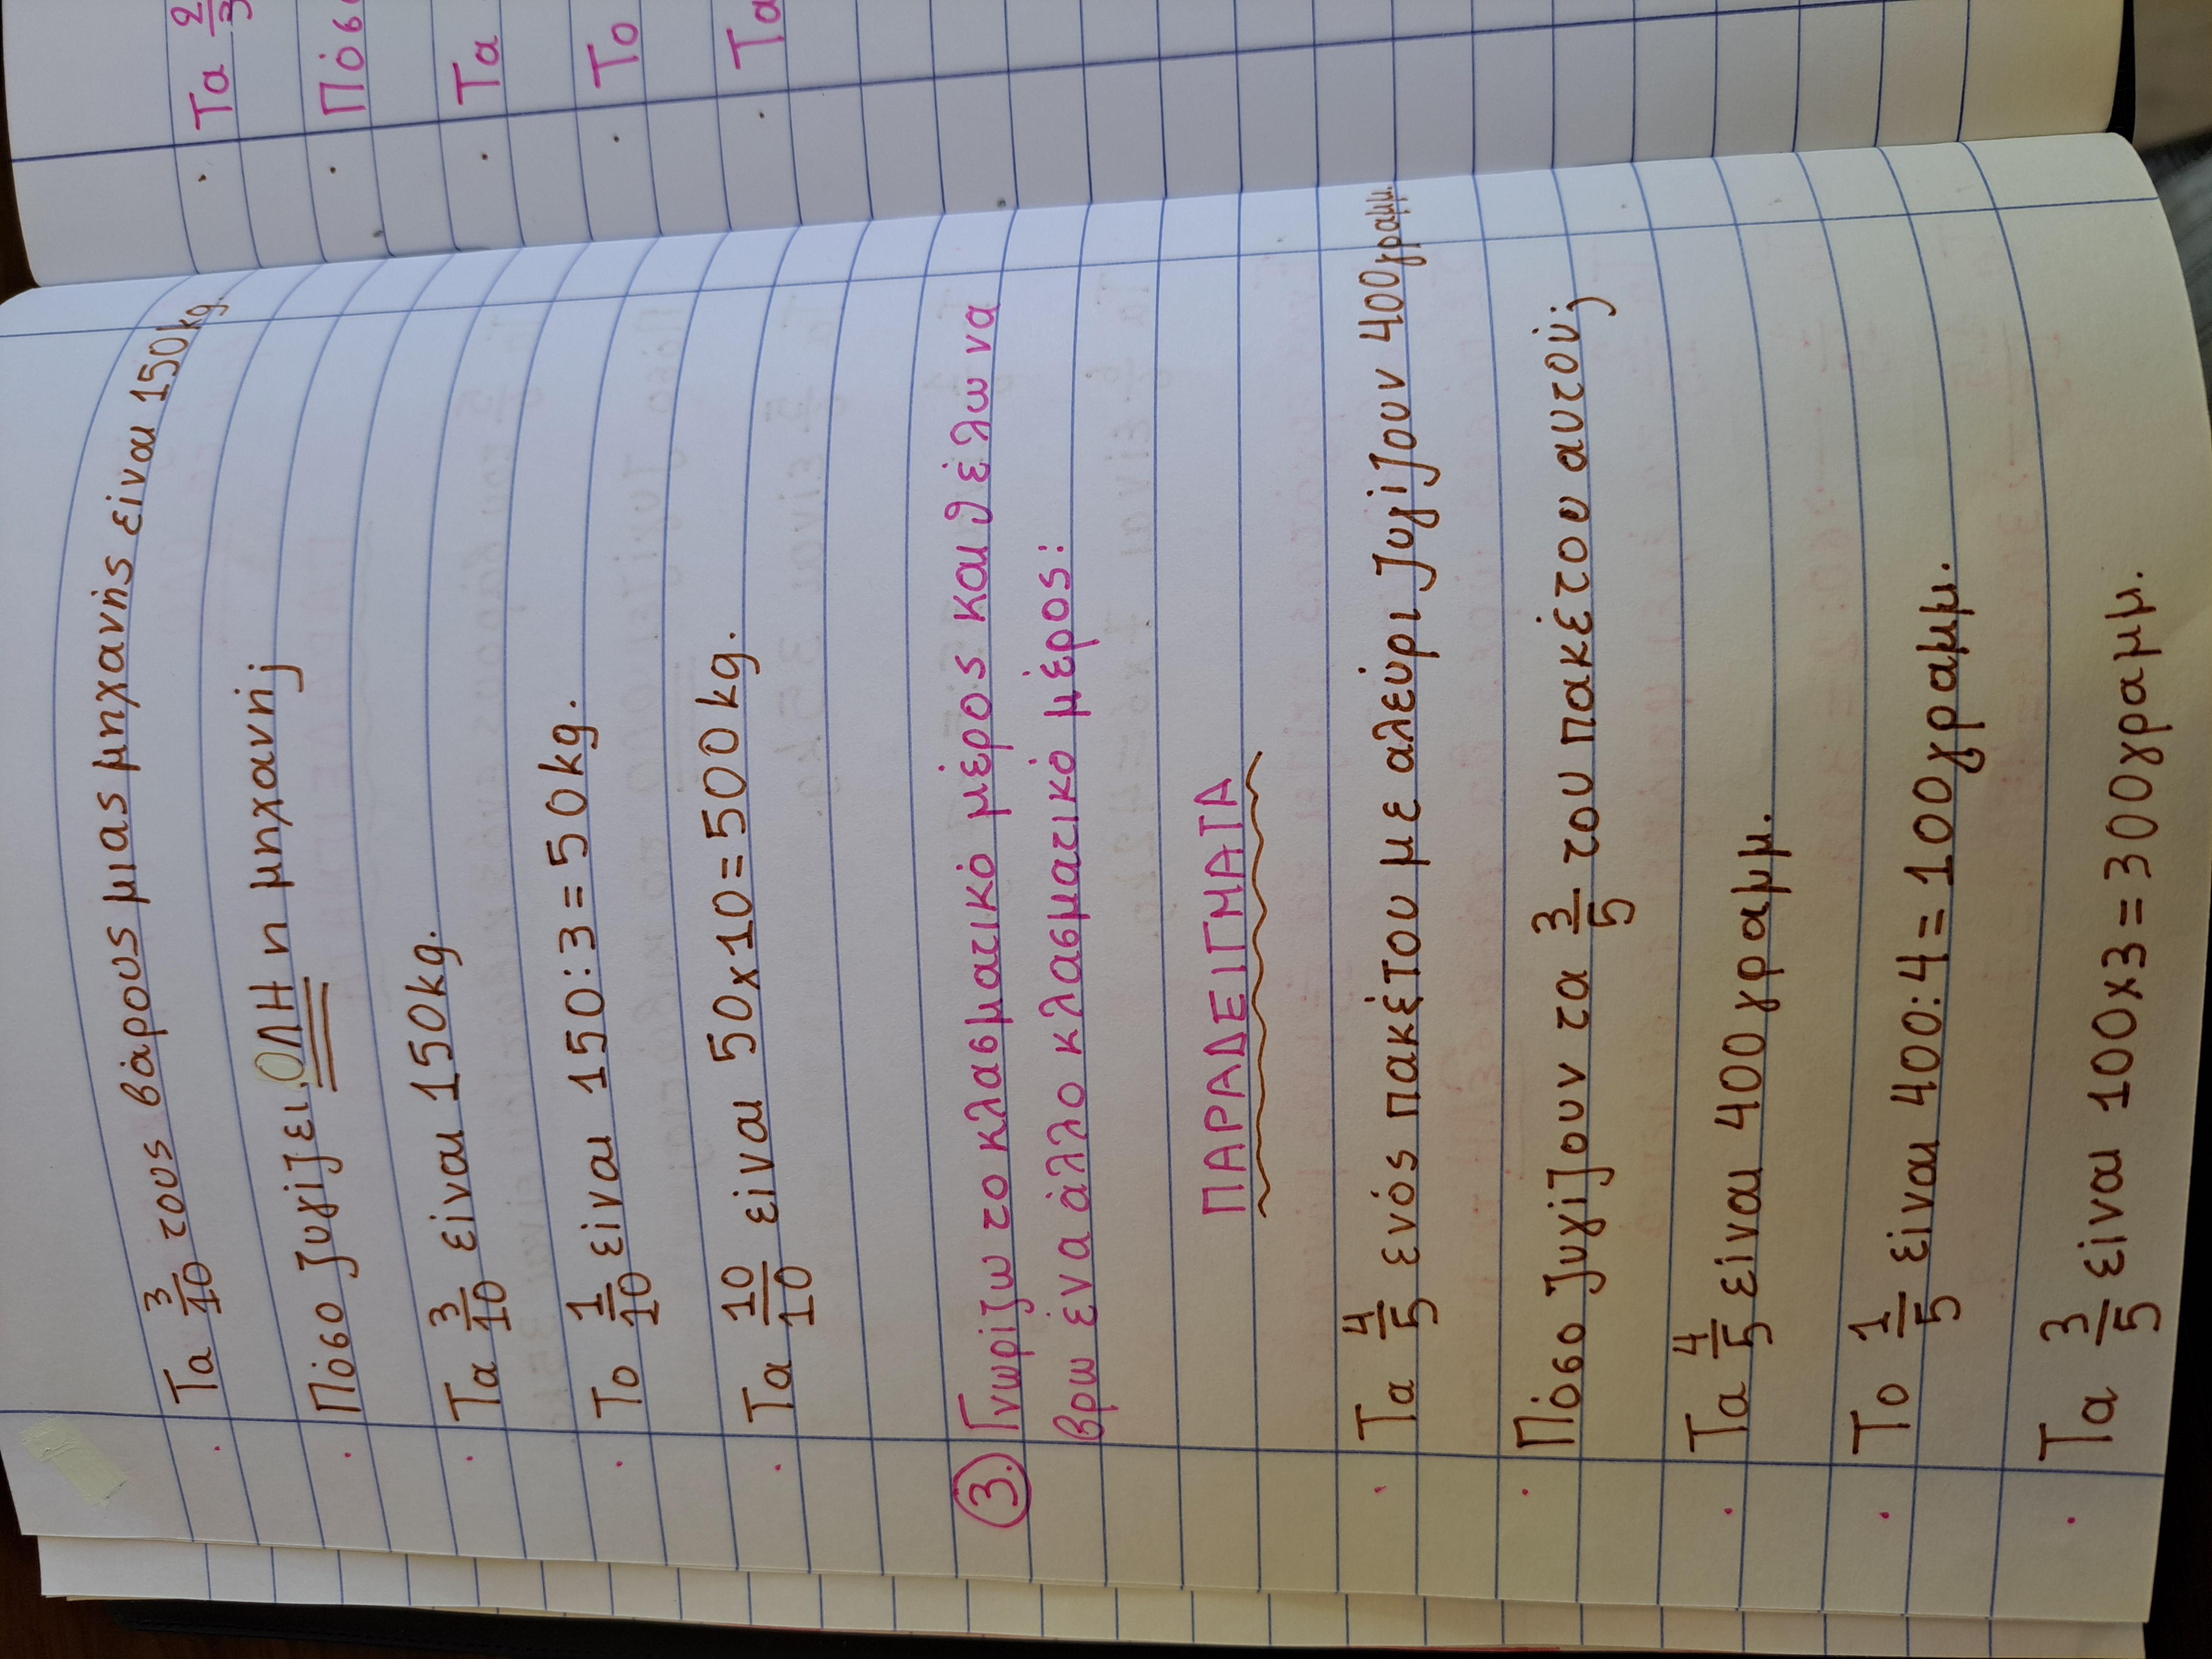 Τα 3/10 τους βάρους μιας μηχανής είναι 150kg.
Πόσο ζυγίζει ΟΛΗ η μηχανή;
Τα 3/10 είναι 150kg.
Το 1/10 είναι 150:3=50kg.
Τα 10/10 είναι 50x10=500kg.
3. Γνωρίζω το κλασματικό μέρος και θέλω να
βρω ένα άλλο κλασματικό μέρος:
ΠΑΡΑΔΕΙΓΜΑΤΑ
Τα 4/5 ενός πακέτου με αλεύρι ζυγίζουν 400γραμμ.
Πόσο ζυγίζουν τα 3/5 του πακέτου αυτού;
Τα 4/5 είναι 400γραμμ.
Το 1/5 είναι 400:4=100γραμμ.
Τα 3/5 είναι 100x3=300γραμμ.
Τα 2/3
Πόσ
Τα
Το
Τα